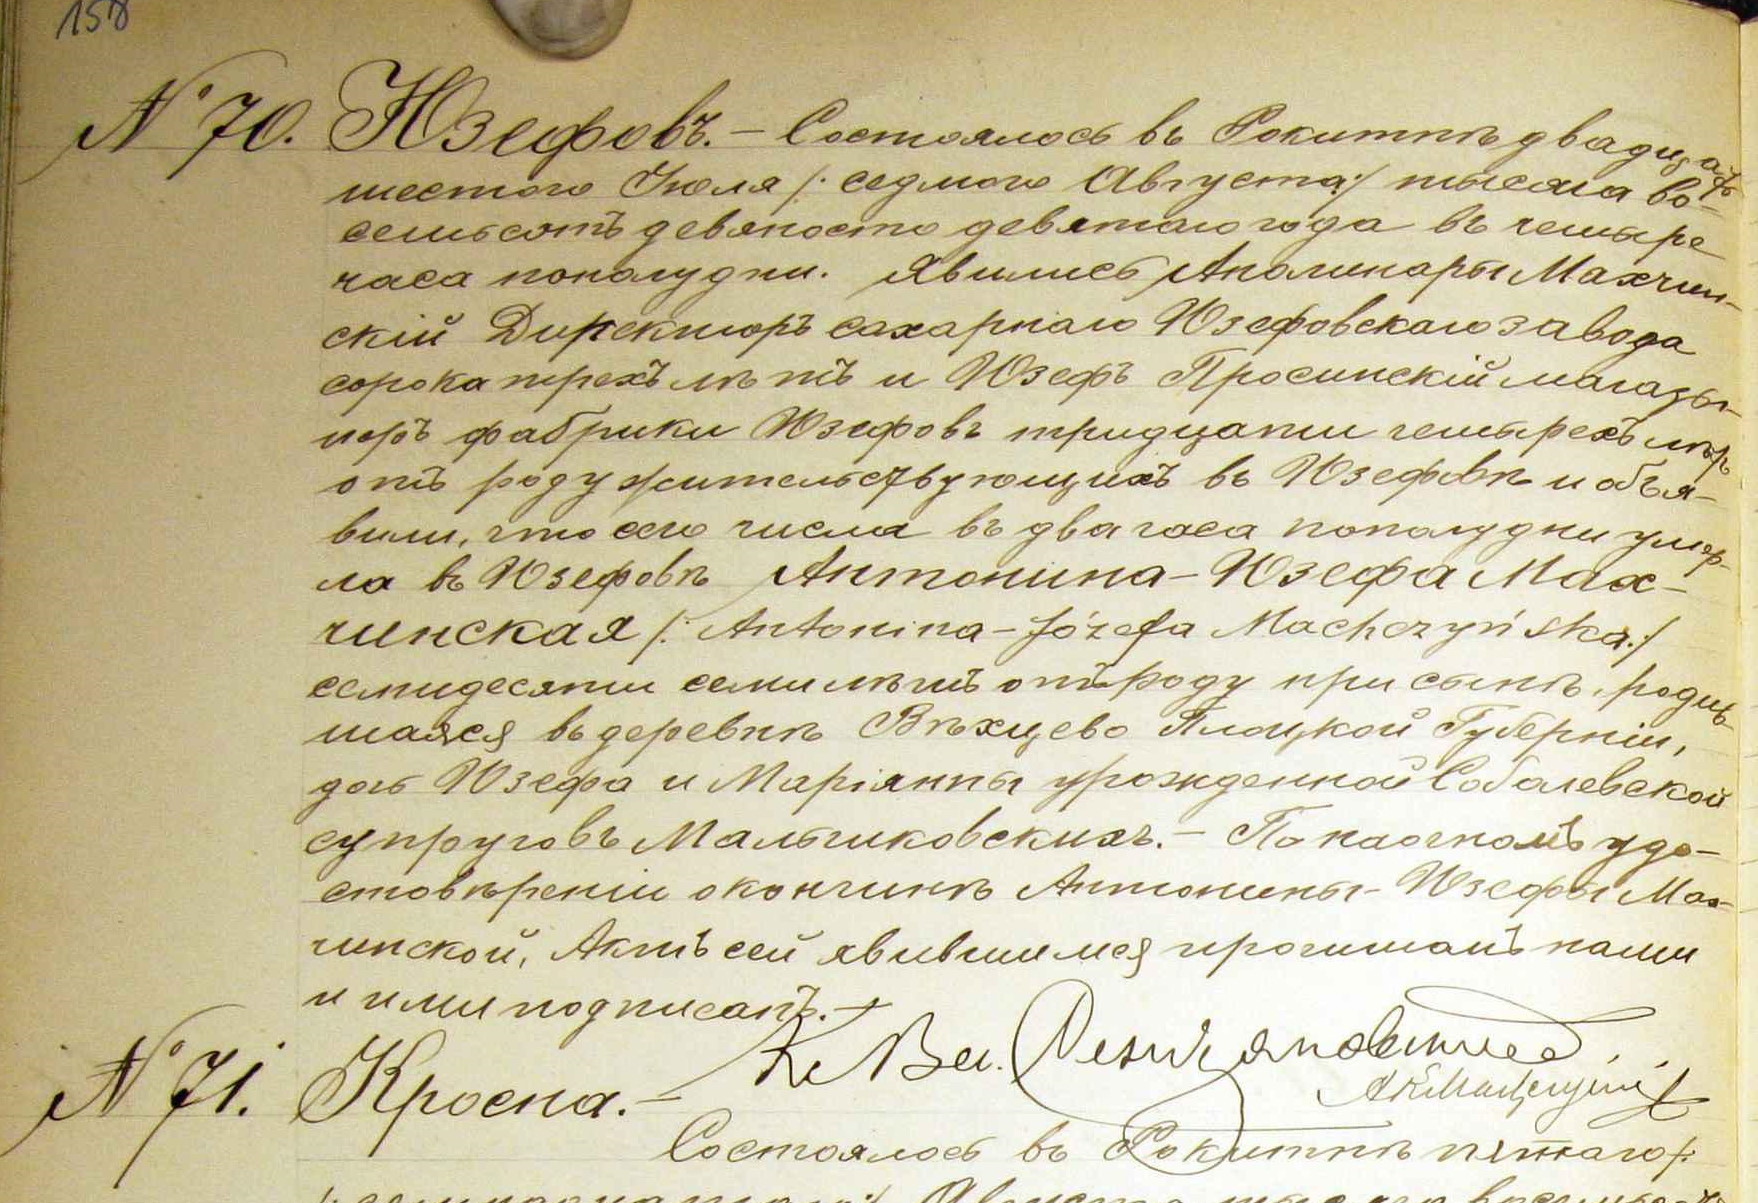 158
№ 70. Юзефовъ. — Состоялось въ Рокитнѣ двадцать
шестого Іюля /: седмого Августа :/ тысяча во-
семьсотъ девяносто девятаго года въ четыре
часа пополудни. Явились Аполинары Махчин-
скій Директоръ сахарнаго Юзефовскаго завода
сорока трехъ лѣтъ и Юзефъ Просинскій магазы-
неръ фабрики Юзефовъ тридцати четырехъ лѣтъ
отъ роду жительствующихъ въ Юзефовѣ и объя-
вили, что сего числа въ два часа пополудни умер-
ла въ Юзефовѣ Антонина-Юзефа Мах-
чинская /: Antonina-Józefa Machczyńska :/
семидесяти семи лѣтъ отъ роду при сынѣ, родив-
шаяся въ деревнѣ Вѣхцево Плоцкой Губерніи,
дочь Юзефа и Маріянны урожденной Соболевской
супруговъ Мальчиковскихъ. — По наочномъ удо-
стовѣреніи о кончинѣ Антонины-Юзефы Мах-
чинской, Актъ сей явившимся прочитанъ нами
и ими подписанъ. —
Кс
№ 71. Кросна. —
Состоялось въ Рокитнѣ пятаго /: